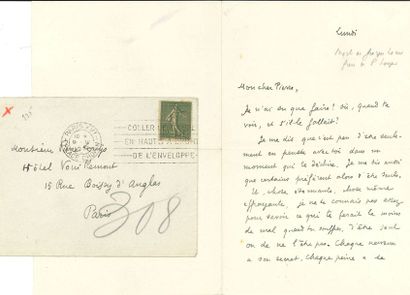 Lundi
Mon cher Pierre,
Je n'ai su que faire! où, quand te
voir, et s'il le fallait?
Je me dis que c'est peu d'être seule-
ment en pensée avec toi dans un
moment qui te déchire. Je me dis aussi
que certains préfèrent alors d'être seuls.
Et, chose étonnante, chose même
effroyable, je ne te connais pas assez
pour savoir ce qui te ferait le moins
de mal quand tu souffres, d'être seul
ou de ne l'être pas. Chaque
a son secret, chaque peine a sa
COLLER LE
EN HAUT À DROITE
DE L'ENVELOPPE
PARIS
Monsieur Pierre Louÿs
Hôtel Vouillemont
15 Rue Boissy d'Anglas
Paris
308